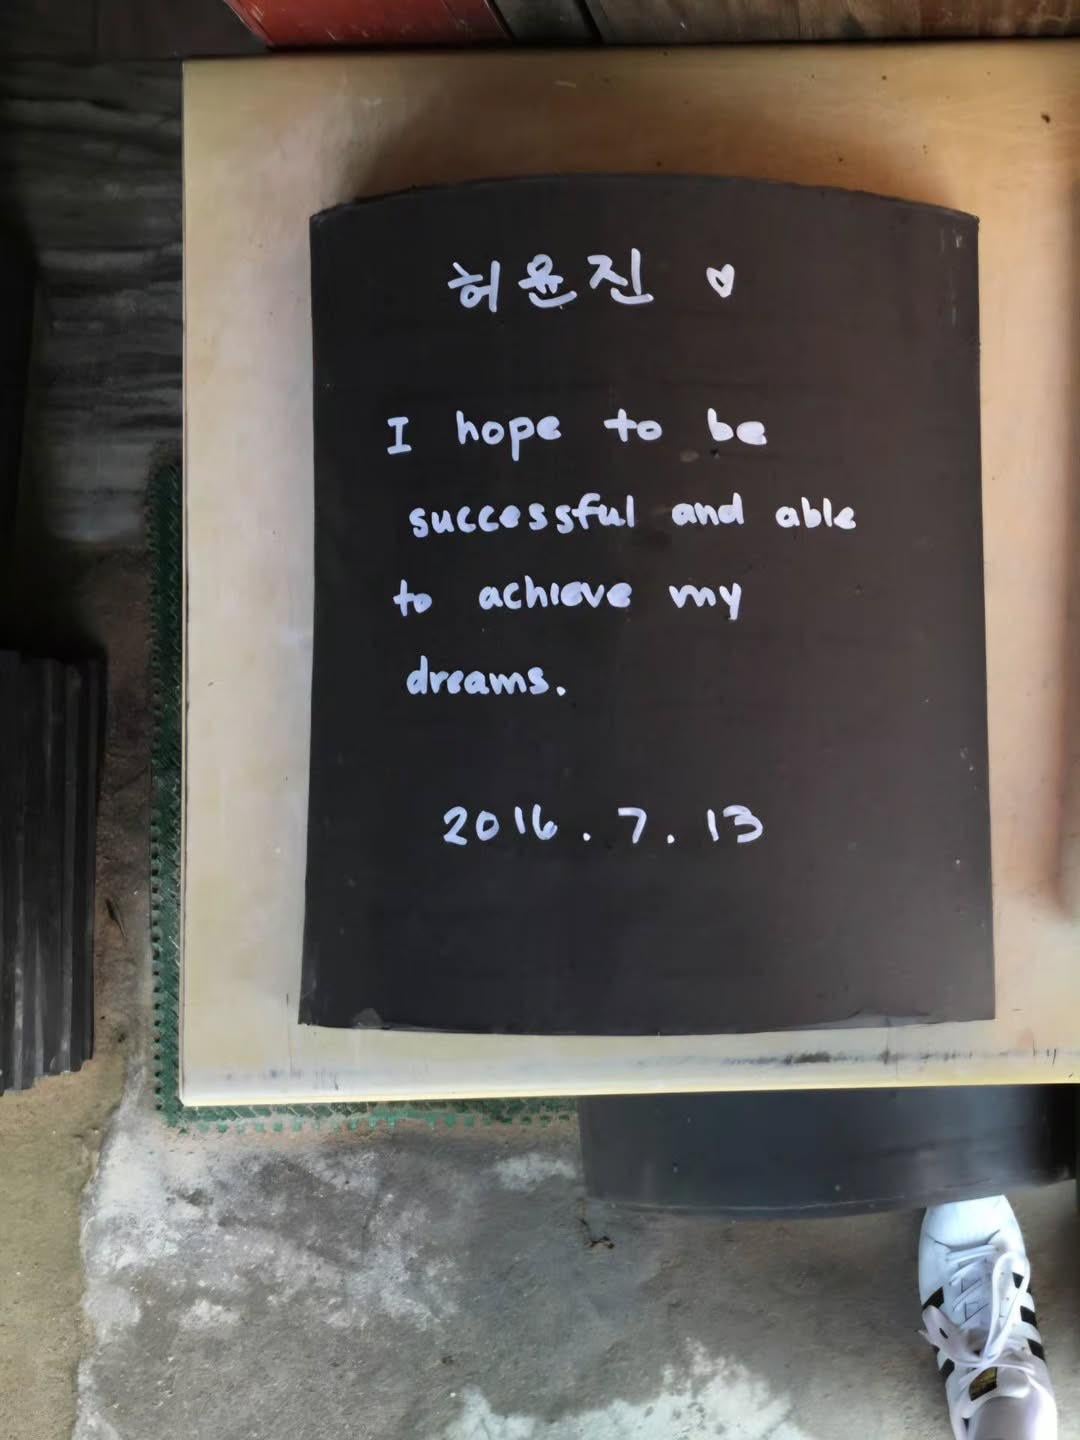 허윤진 ♡
I hope to be
successful and able
to achieve my
dreams.
2016.7.13